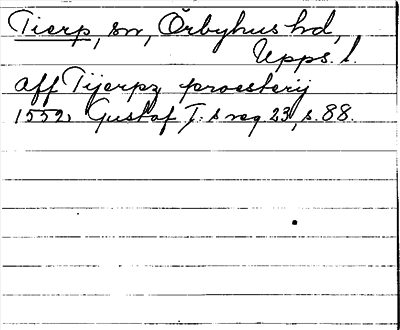 Tierp, sn, Örbyhus hd,
Upps. l.
aff Tijerpz proesterij
1552, Gustaf I:s reg 23, s. 88.